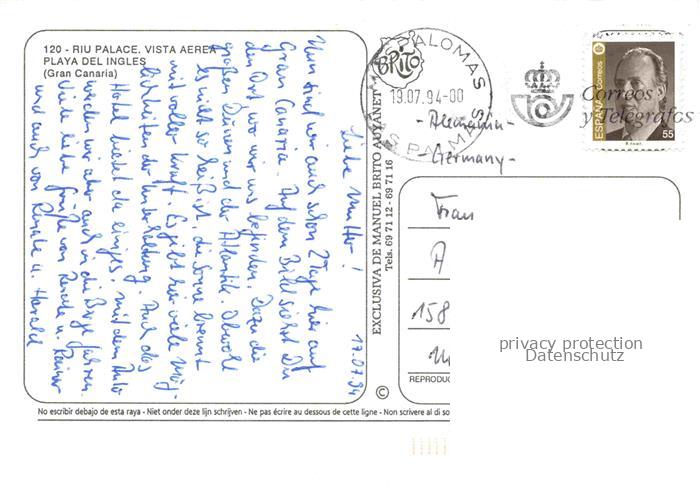 120 - RIU PALACE. VISTA AEREA
PLAYA DEL INGLES
(Gran Canaria)
17.07.94
Liebe Mutter!
Nun sind wir auch schon 2 Tage hier auf
Gran Canaria. Auf dem Bild siehst Du
den Ort wo wir uns befinden. Dazu die
großen Dünen und der Atlantik. Obwohl
es nicht so heiß ist, die Sonne brennt
mit voller Kraft. Es gibt hier viele Mög-
lichkeiten der Unterhaltung. Auch das
Hotel bietet da einiges. Mit dem Auto
werden wir aber auch in die Berge fahren.
Viele liebe Grüße von Renate u. Rainer
und auch von Renate u. Harald
EXCLUSIVA DE MANUEL BRITO AUYANET
Tels. 69 71 12 - 69 71 16
BRITO
PALOMAS
19.07.94-00
S PALMAS
Correos
y Telégrafos
ESPAÑA Correos
55
- Alemania -
- Germany -
Frau
A
158
©
REPRODUC
privacy protection
Datenschutz
No escribir debajo de esta raya - Niet onder deze lijn schrijven - Ne pas écrire au dessous de cette ligne - Non scrivere al di so